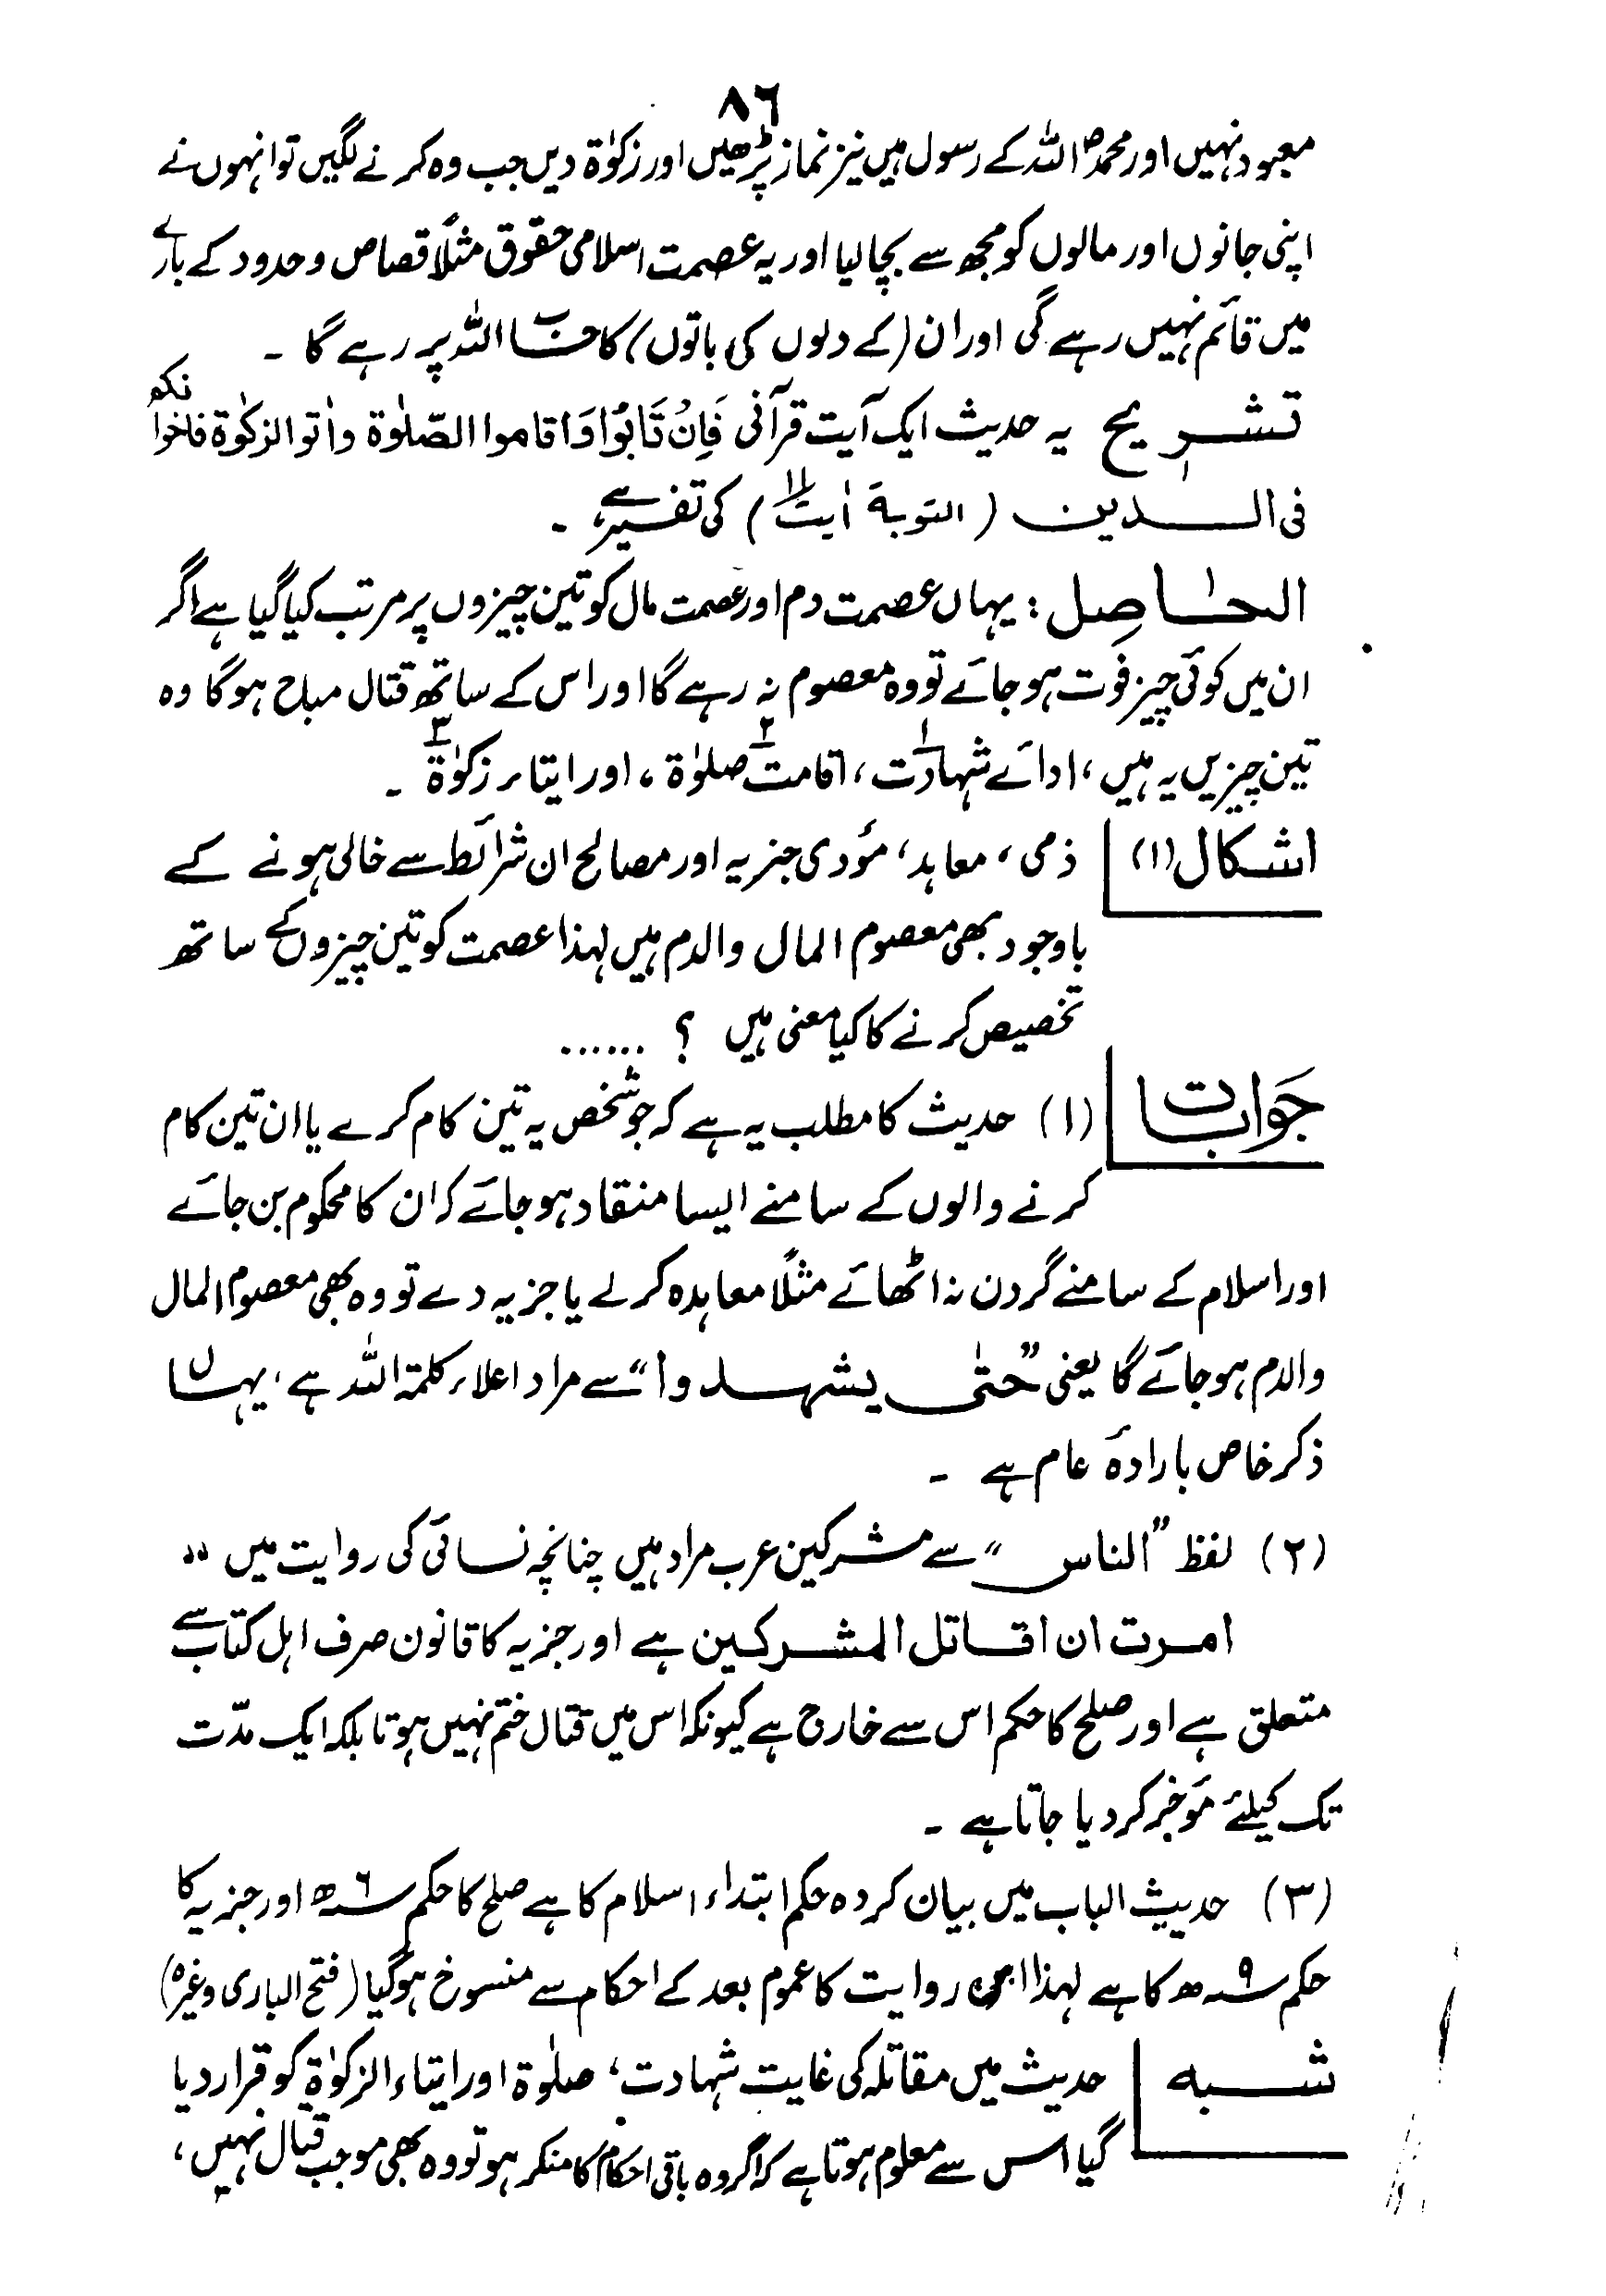 ٨٦
معبود نہیں اور محمدؐ اللہ کے رسول ہیں نیز نماز پڑھیں اور زکوٰۃ دیں جب وہ کرنے لگیں تو انہوں نے
اپنی جانوں اور مالوں کو مجھ سے بچا لیا اور یہ عصمت اسلامی حقوق مثلًا قصاص و حدود کے بارے
میں قائم نہیں رہے گی اور ان (کے دلوں کی باتوں) کا حساب اللہ پر رہے گا ۔
تشریح یہ حدیث ایک آیت قرآنی فَاِنْ تَابُوْا وَاَقاموا الصّلوٰة واٰتوا الزکوٰة فاخوانکم
فی الدین (التوبة اٰیت ۱۱) کی تفسیر ہے ۔
الحاصِل : یہاں عصمت دم اور عصمت مال کو تین چیزوں پر مرتب کیا گیا ہے اگر
ان میں کوئی چیز فوت ہو جائے تو وہ معصوم نہ رہے گا اور اس کے ساتھ قتال مباح ہوگا وہ
تین چیزیں یہ ہیں ، ادائے شہادت۱ ، اقامت۲ صلوٰۃ ، اور ایتاء زکوٰۃ۳ ۔
اشکال (۱) ذمی ، معاہد ، مؤدی جزیہ اور مصالح ان شرائط سے خالی ہونے کے
باوجود بھی معصوم المال والدم ہیں لہذا عصمت کو تین چیزوں کے ساتھ
تخصیص کرنے کا کیا معنی ہیں ؟ ......
جوابات (۱) حدیث کا مطلب یہ ہے کہ جو شخص یہ تین کام کرے یا ان تین کام
کرنے والوں کے سامنے ایسا منقاد ہو جائے کہ ان کا محکوم بن جائے
اور اسلام کے سامنے گردن نہ اٹھائے مثلًا معاہدہ کر لے یا جزیہ دے تو وہ بھی معصوم المال
والدم ہو جائے گا یعنی ”حتٰی یشہدوا“ سے مراد اعلاء کلمۃ اللہ ہے ، یہاں
ذکر خاص بارادۂ عام ہے ۔
(۲) لفظ ”الناس“ سے مشرکین عرب مراد ہیں چنانچہ نسائی کی روایت میں ”
امرت ان اقاتل المشرکین ہے اور جزیہ کا قانون صرف اہل کتاب سے
متعلق ہے اور صلح کا حکم اس سے خارج ہے کیونکہ اس میں قتال ختم نہیں ہوتا بلکہ ایک مدّت
تک کیلئے مؤخر کر دیا جاتا ہے ۔
(۳) حدیث الباب میں بیان کردہ حکم ابتداء اسلام کا ہے صلح کا حکم ۶ سنہ ھ اور جزیہ کا
حکم ۹ سنہ ھ کا ہے لہذا روایت کا عموم بعد کے احکام سے منسوخ ہو گیا (فتح الباری وغیرہ)
شبہ حدیث میں مقاتلہ کی غایت شہادت ، صلوٰۃ اور ایتاء الزکوٰۃ کو قرار دیا
گیا اس سے معلوم ہوتا ہے کہ اگر وہ باقی احکام کا منکر ہو تو وہ بھی موجب قتال نہیں ،